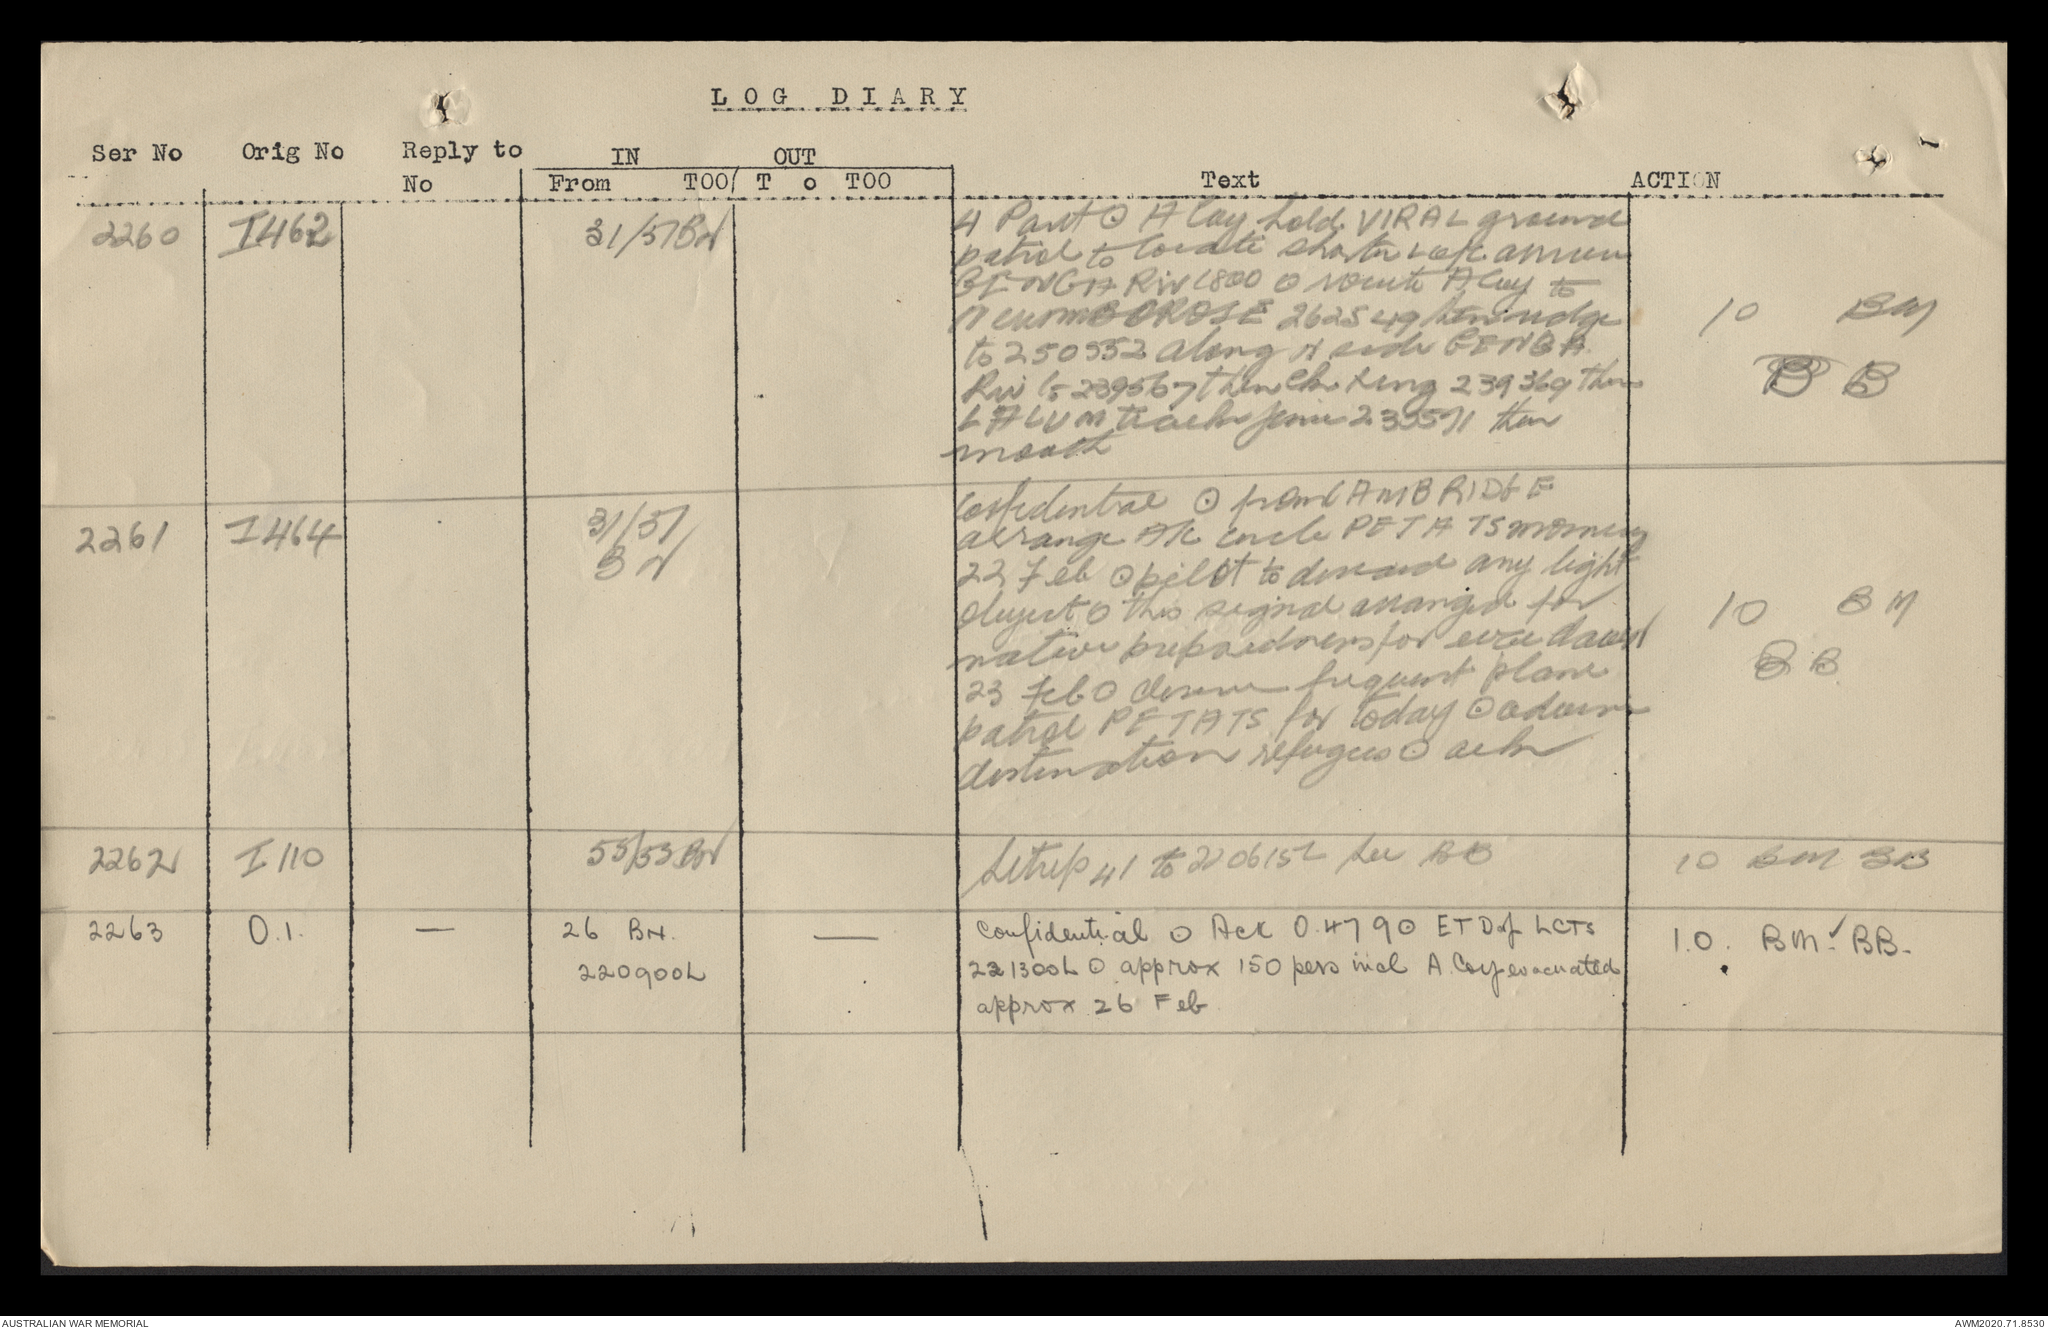 LOG DIARY
Ser No Orig No Reply to No IN OUT
From TOO/ T o TOO Text ACTION
2260 I462 31/51 Bn
4 Part ⊙ A Coy hold VIRAL ground
patrol to locate
GENGA Riv 1800 ⊙ route A Coy to
262549 then ridge
to 250552 along N side GENGA
Riv to 239567 then 239569 then
track junc 233571 then
mouth
10 BM
BB
2261 I464 31/51
Bn
Confidential ⊙ from CAMBRIDGE
arrange PETATS morning
22 Feb ⊙ pilot to any light
⊙ this signal arranged for
native preparedness for
23 Feb ⊙ desire frequent plane
patrol PETATS for today ⊙ advise
destination refugees ⊙ ack
10 BM
BB
2262 I110 55/53 Bn Sitrep 41 to 220615L See BB 10 BM BB
2263 O.1. — 26 Bn. —
220900L
Confidential ⊙ Ack O.4790 ETD of LCTs
221300L ⊙ approx 150 pers incl A Coy evacuated
approx 26 Feb
10. BM. BB.
AUSTRALIAN WAR MEMORIAL
AWM2020.71.8530